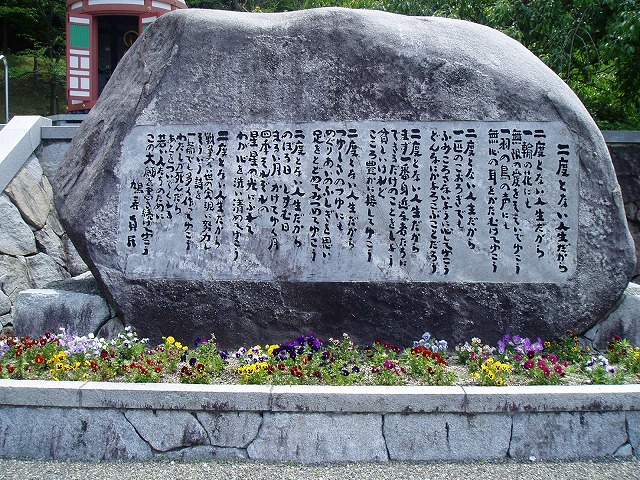 二度とない人生だから
二度とない人生だから
一輪の花にも
無限の愛をそそいでゆこう
一羽の鳥の声にも
無心の耳をかたむけてゆこう
二度とない人生だから
一匹のこおろぎでも
ふみころさないよう心してゆこう
どんなにかよろこぶことだろう
二度とない人生だから
まず一番身近な者たちに
できるだけのことをしよう
貧しいけれど
こころ豊かに接してゆこう
二度とない人生だから
つゆくさのつゆにも
めぐりあいのふしぎを思い
足をとどめてみつめてゆこう
二度とない人生だから
のぼる日しずむ日
まるい月かけてゆく月
四季それぞれの
星々の光にふれて
わが心を洗い清めてゆこう
二度とない人生だから
戦争のない世の実現に努力し
そういう詩を
一篇でも多く作ってゆこう
わたしが死んだら
あとをついでくれる
若い人たちのために
この大願を書き続けてゆこう
坂村真民